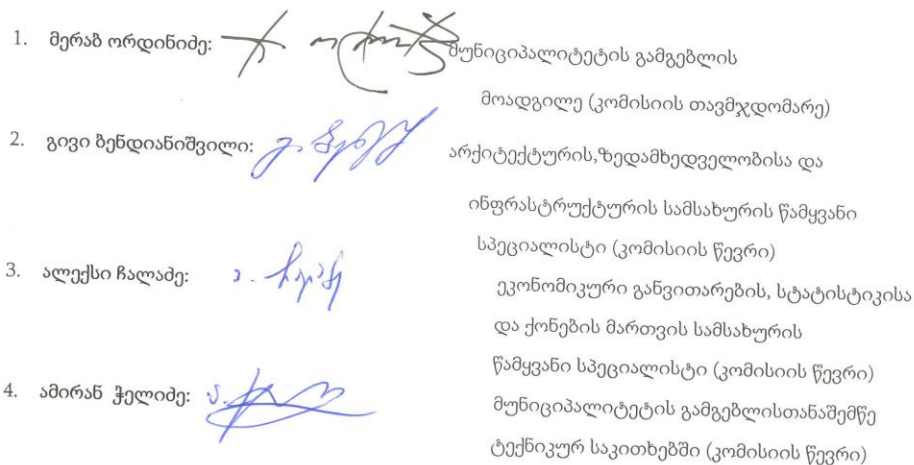 1. მერაბ ორდინიძე: მუნიციპალიტეტის გამგებლის
მოადგილე (კომისიის თავმჯდომარე)
2. გივი ბენდიანიშვილი: არქიტექტურის,ზედამხედველობისა და
ინფრასტრუქტურის სამსახურის წამყვანი
სპეციალისტი (კომისიის წევრი)
3. ალექსი ჩალაძე:
ეკონომიკური განვითარების, სტატისტიკისა
და ქონების მართვის სამსახურის
წამყვანი სპეციალისტი (კომისიის წევრი)
4. ამირან ჭელიძე: მუნიციპალიტეტის გამგებლისთანაშემწე
ტექნიკურ საკითხებში (კომისიის წევრი)